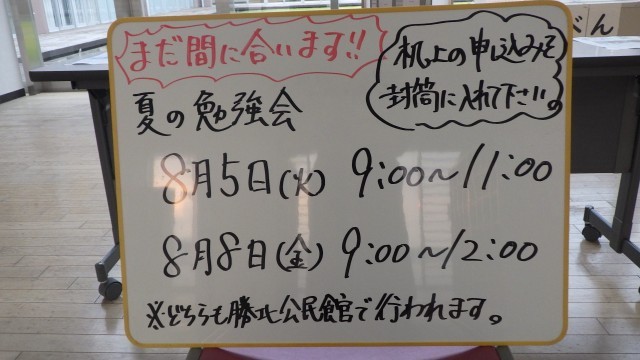 まだ間に合います!!
机上の申し込みを
封筒に入れて下さい。
夏の勉強会
8月5日(火) 9:00~11:00
8月8日(金) 9:00~12:00
※どちらも勝北公民館で行われます。
べん